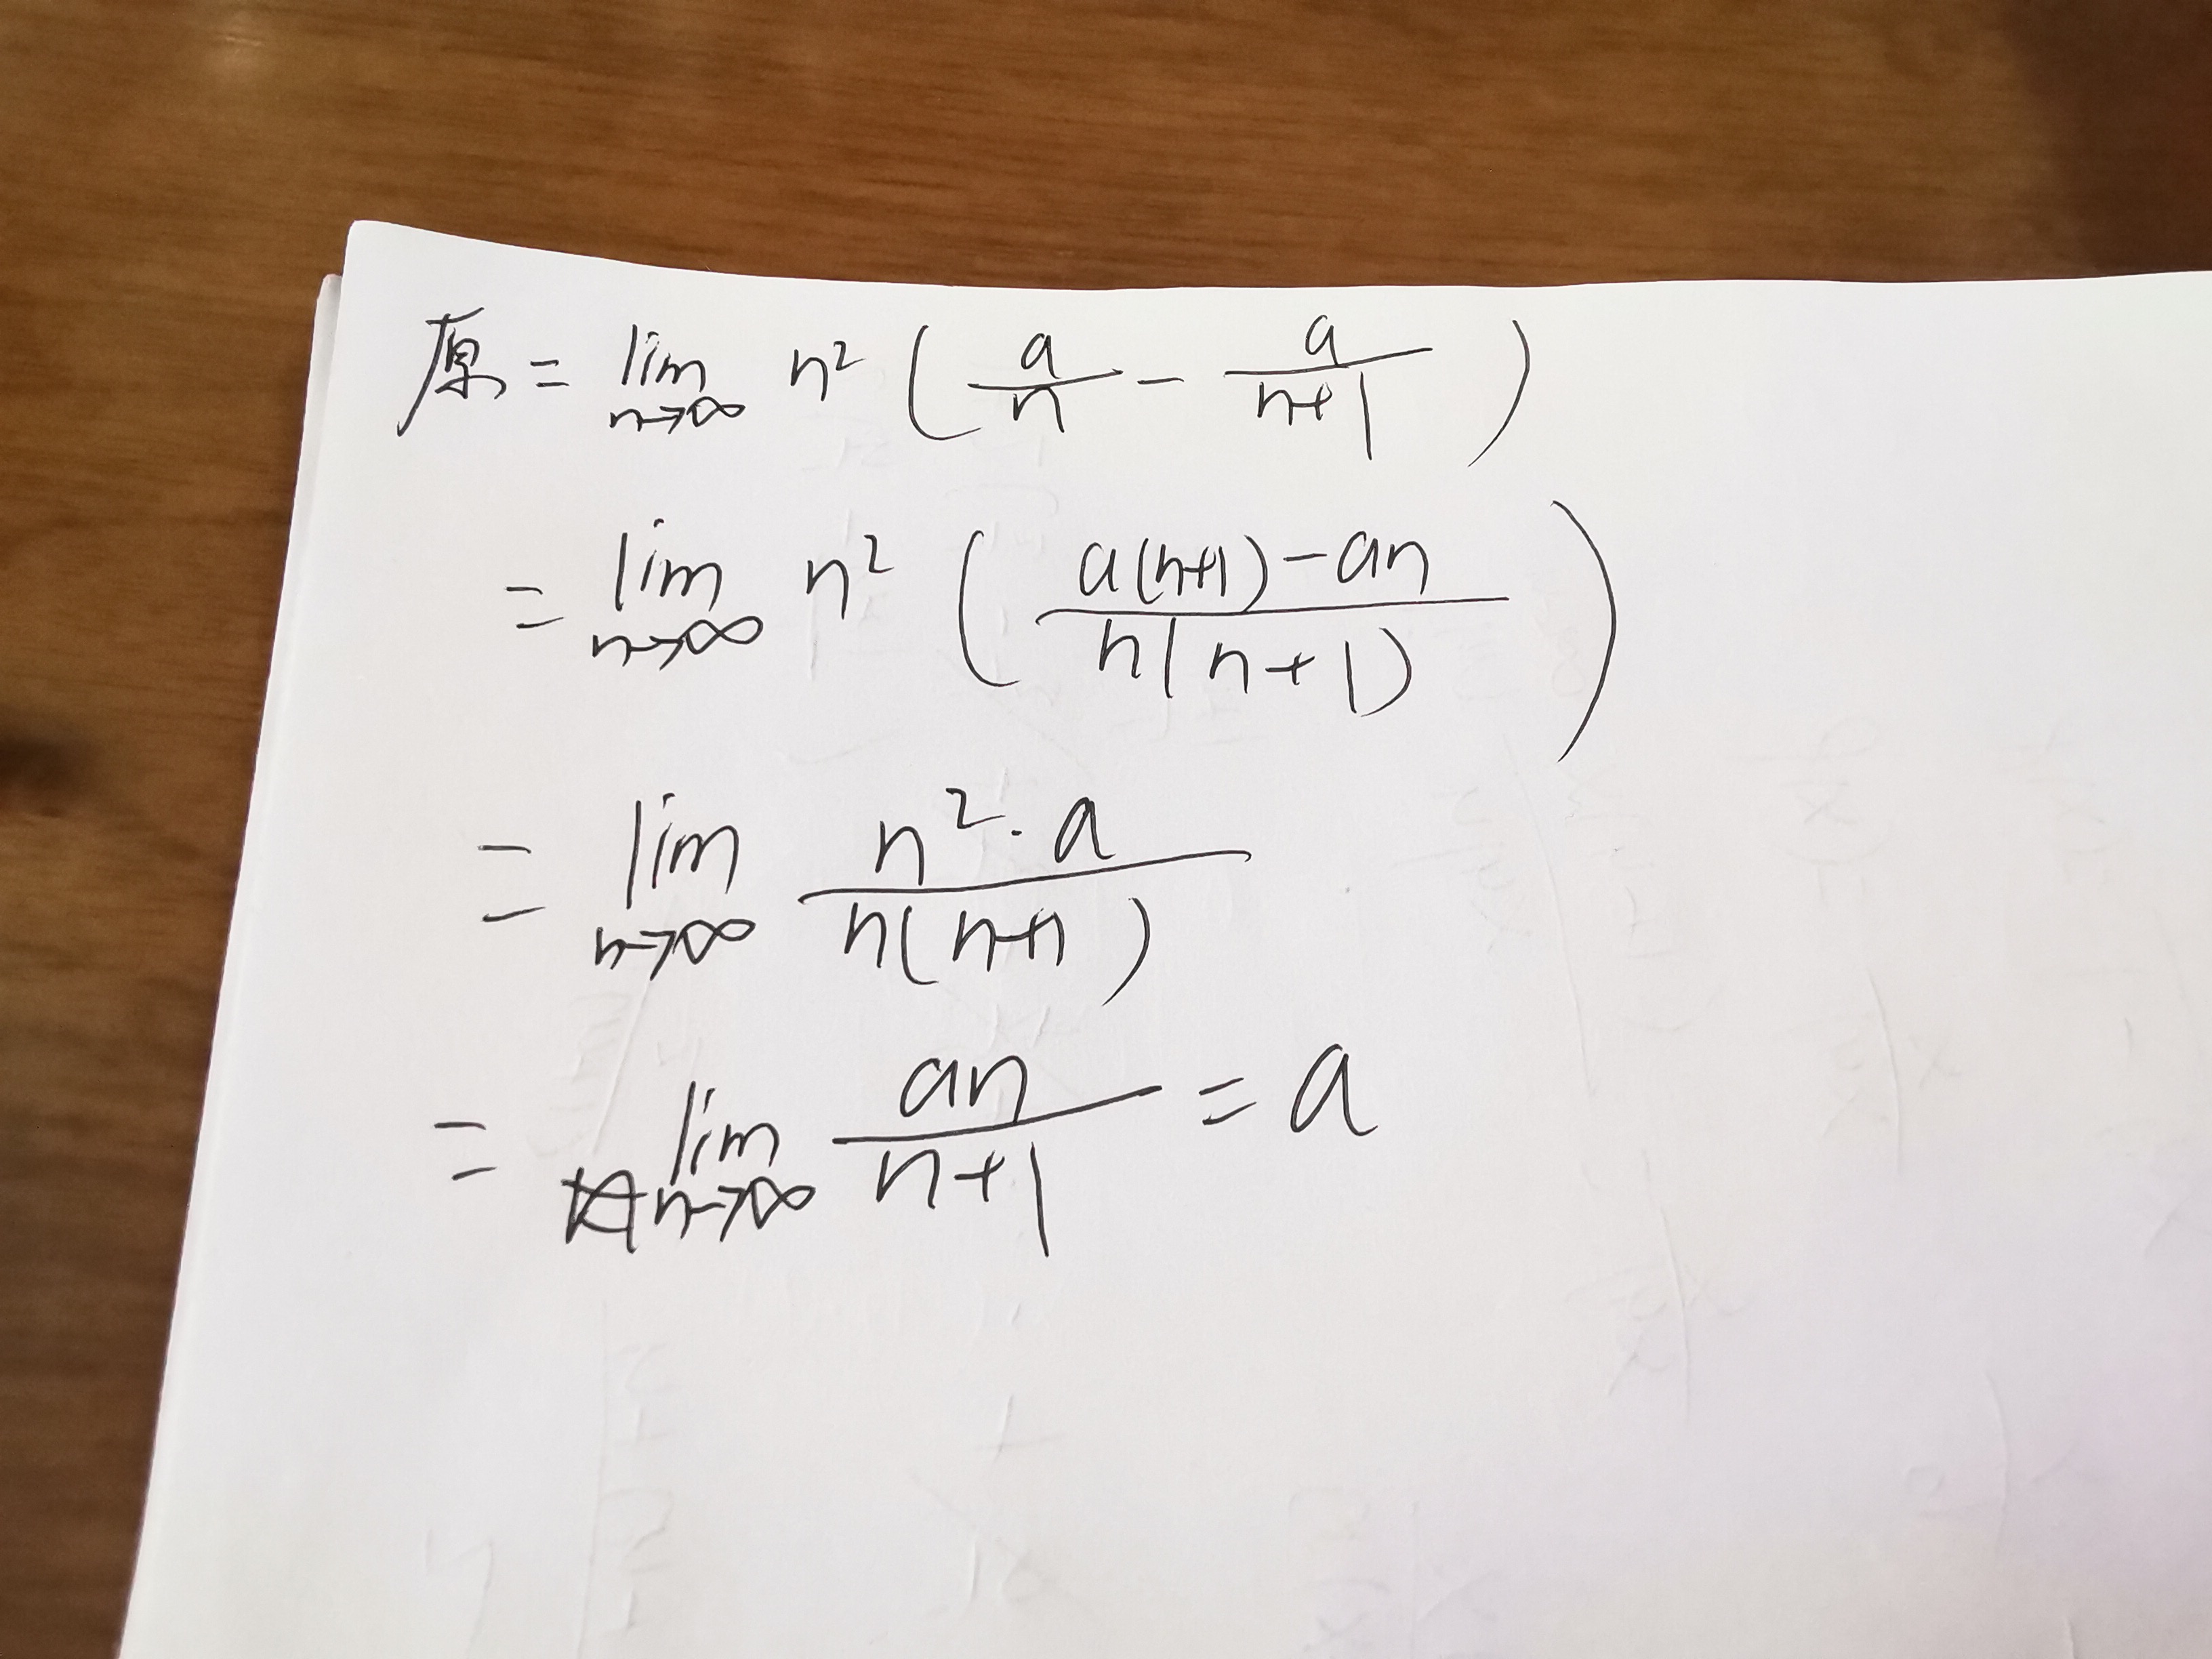 原 = lim n→∞ n² ( a/n − a/(n+1) )
= lim n→∞ n² ( (a(n+1)−an)/(n(n+1)) )
= lim n→∞ (n²·a)/(n(n+1))
= lim n→∞ an/(n+1) = a